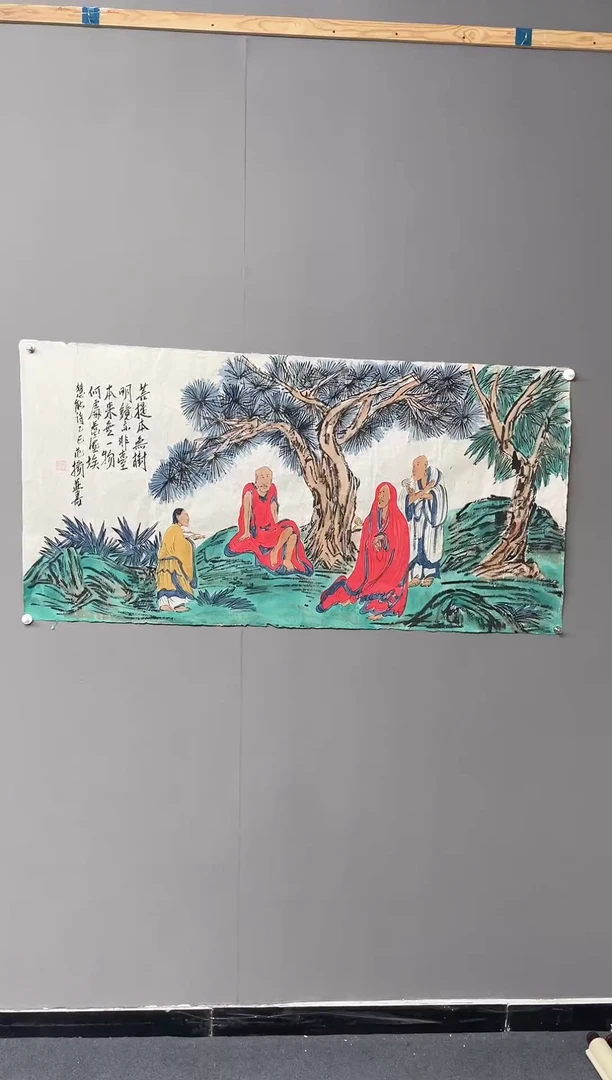 菩提本無樹
明鏡亦非臺
本來無一物
何處惹塵埃
慧能詩乙巳